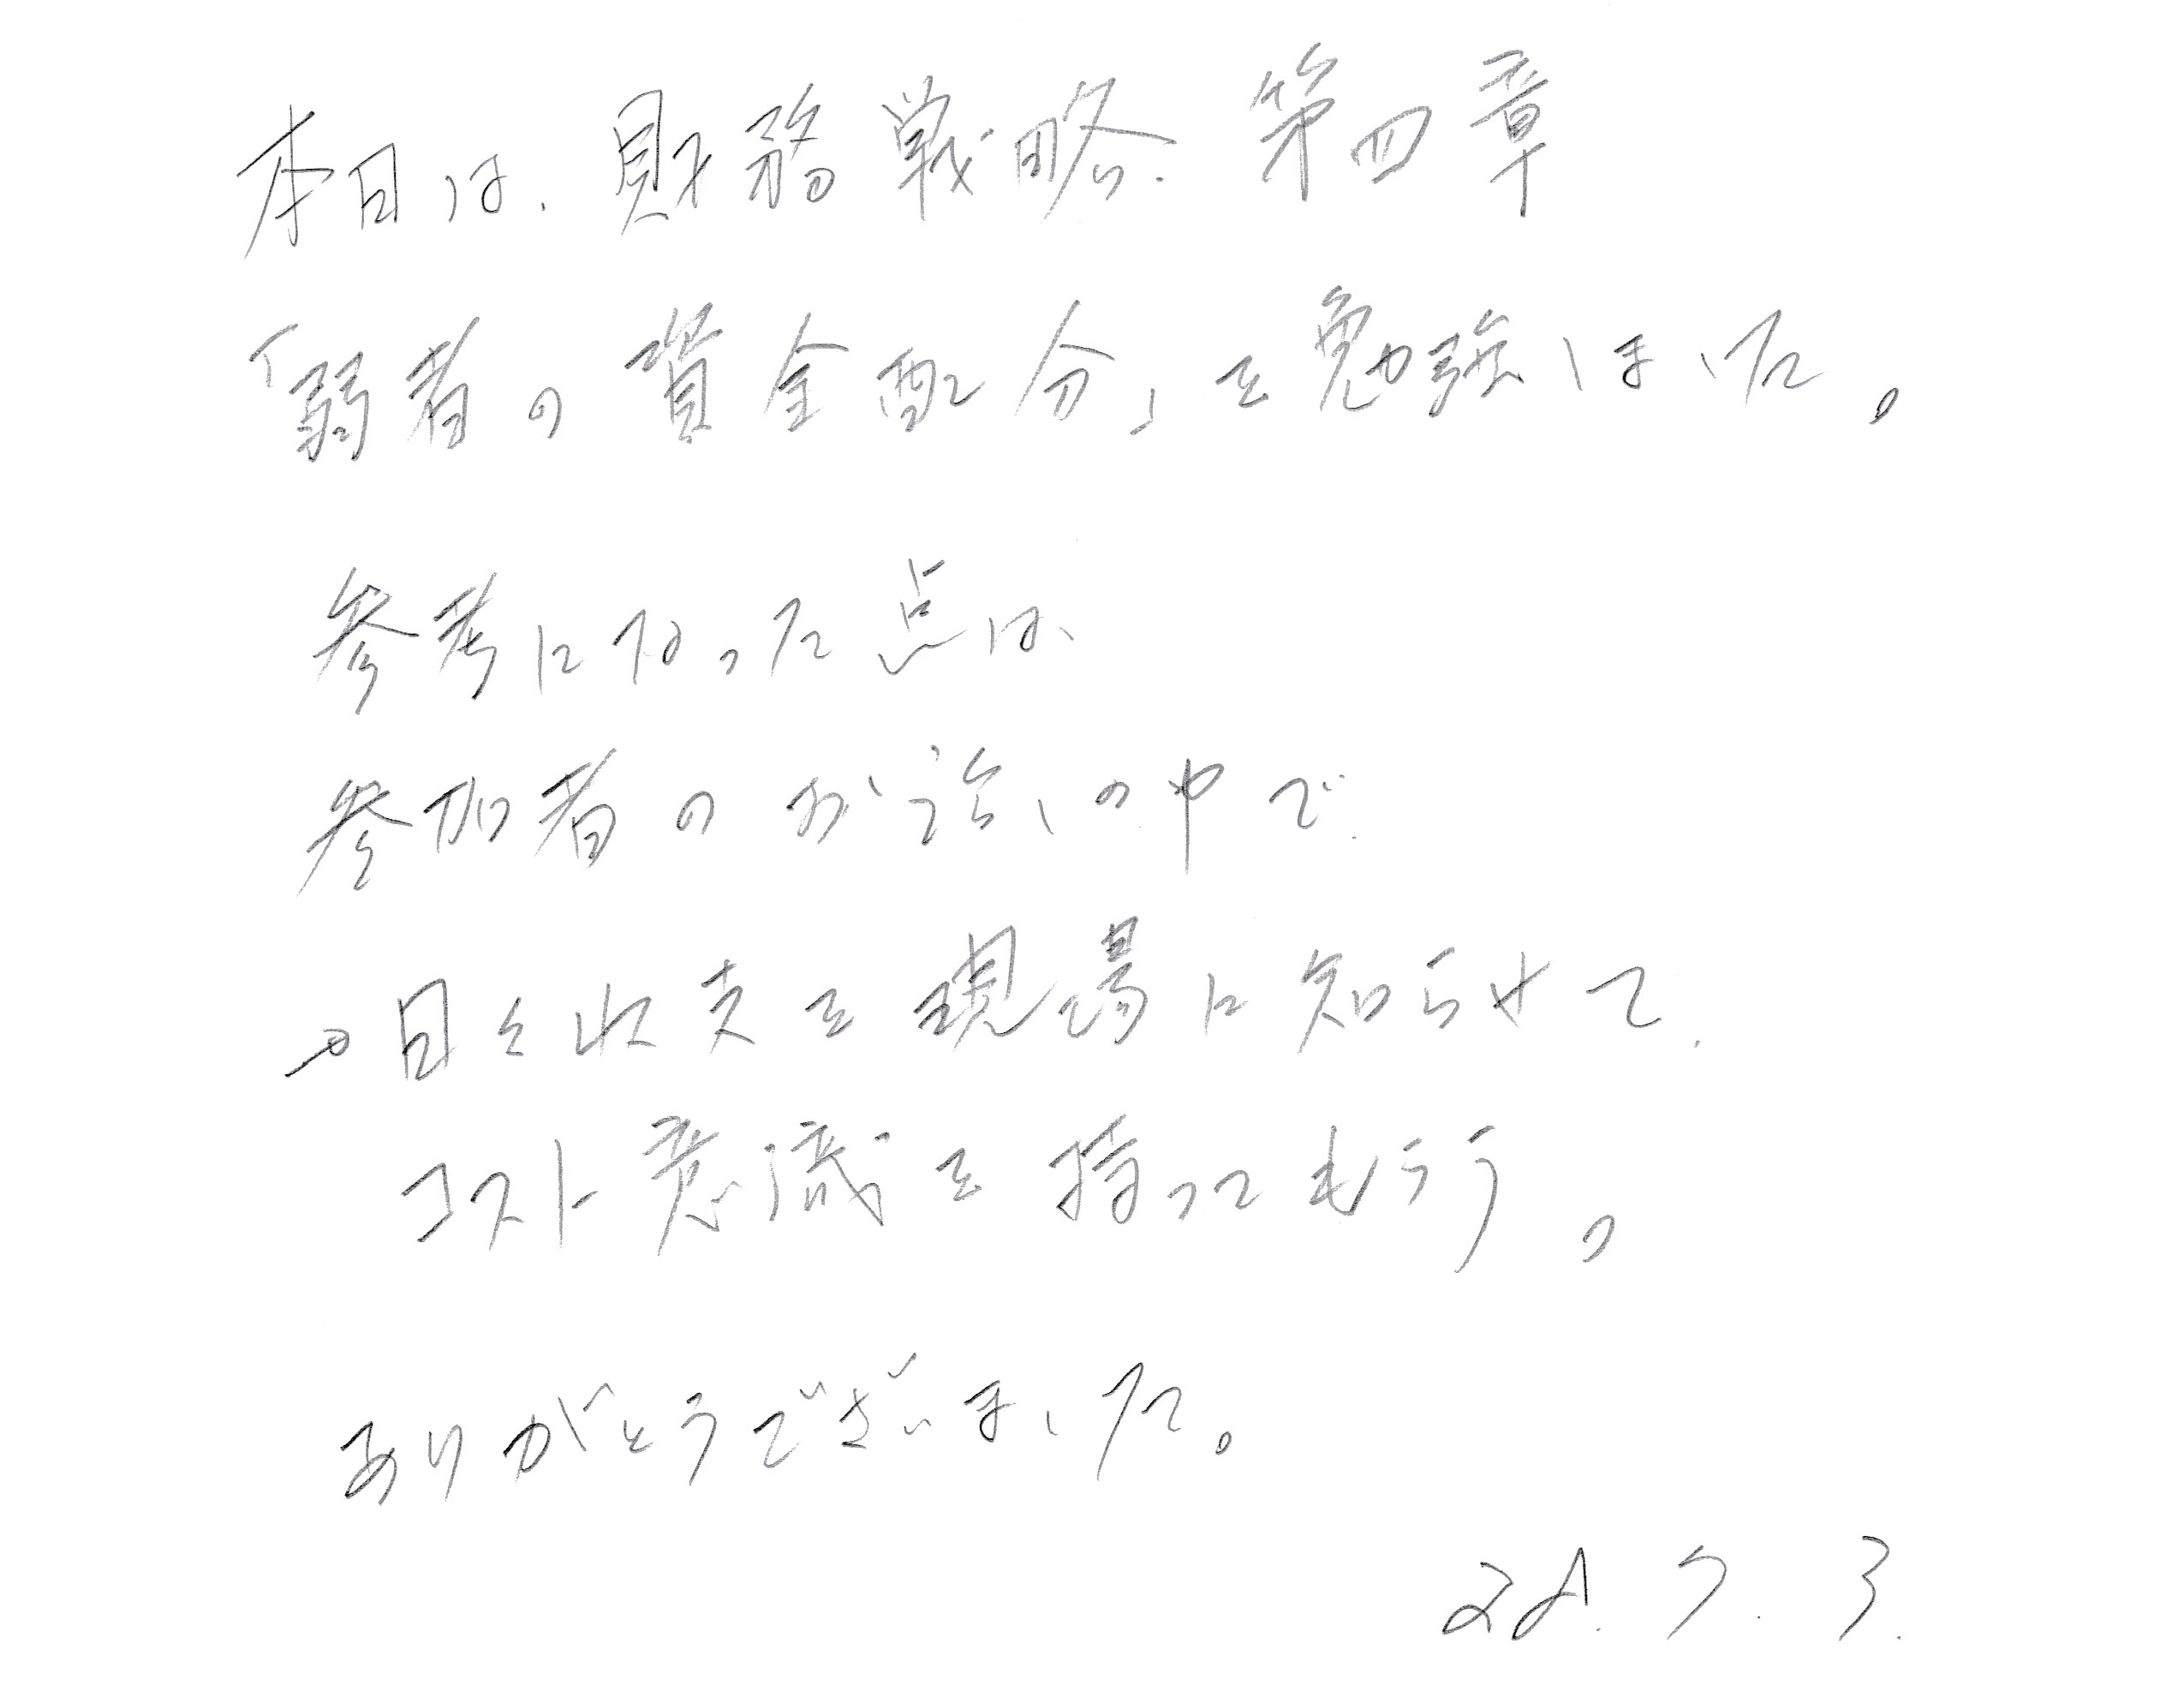 本日は、財務戦略 第四章
「弱者の資金配分」を勉強しました。
参考になった点は、
参加者のお話しの中で、
→日々収支を現場に知らせて、
コスト意識を持ってもらう。
ありがとうございました。
28.7.3.